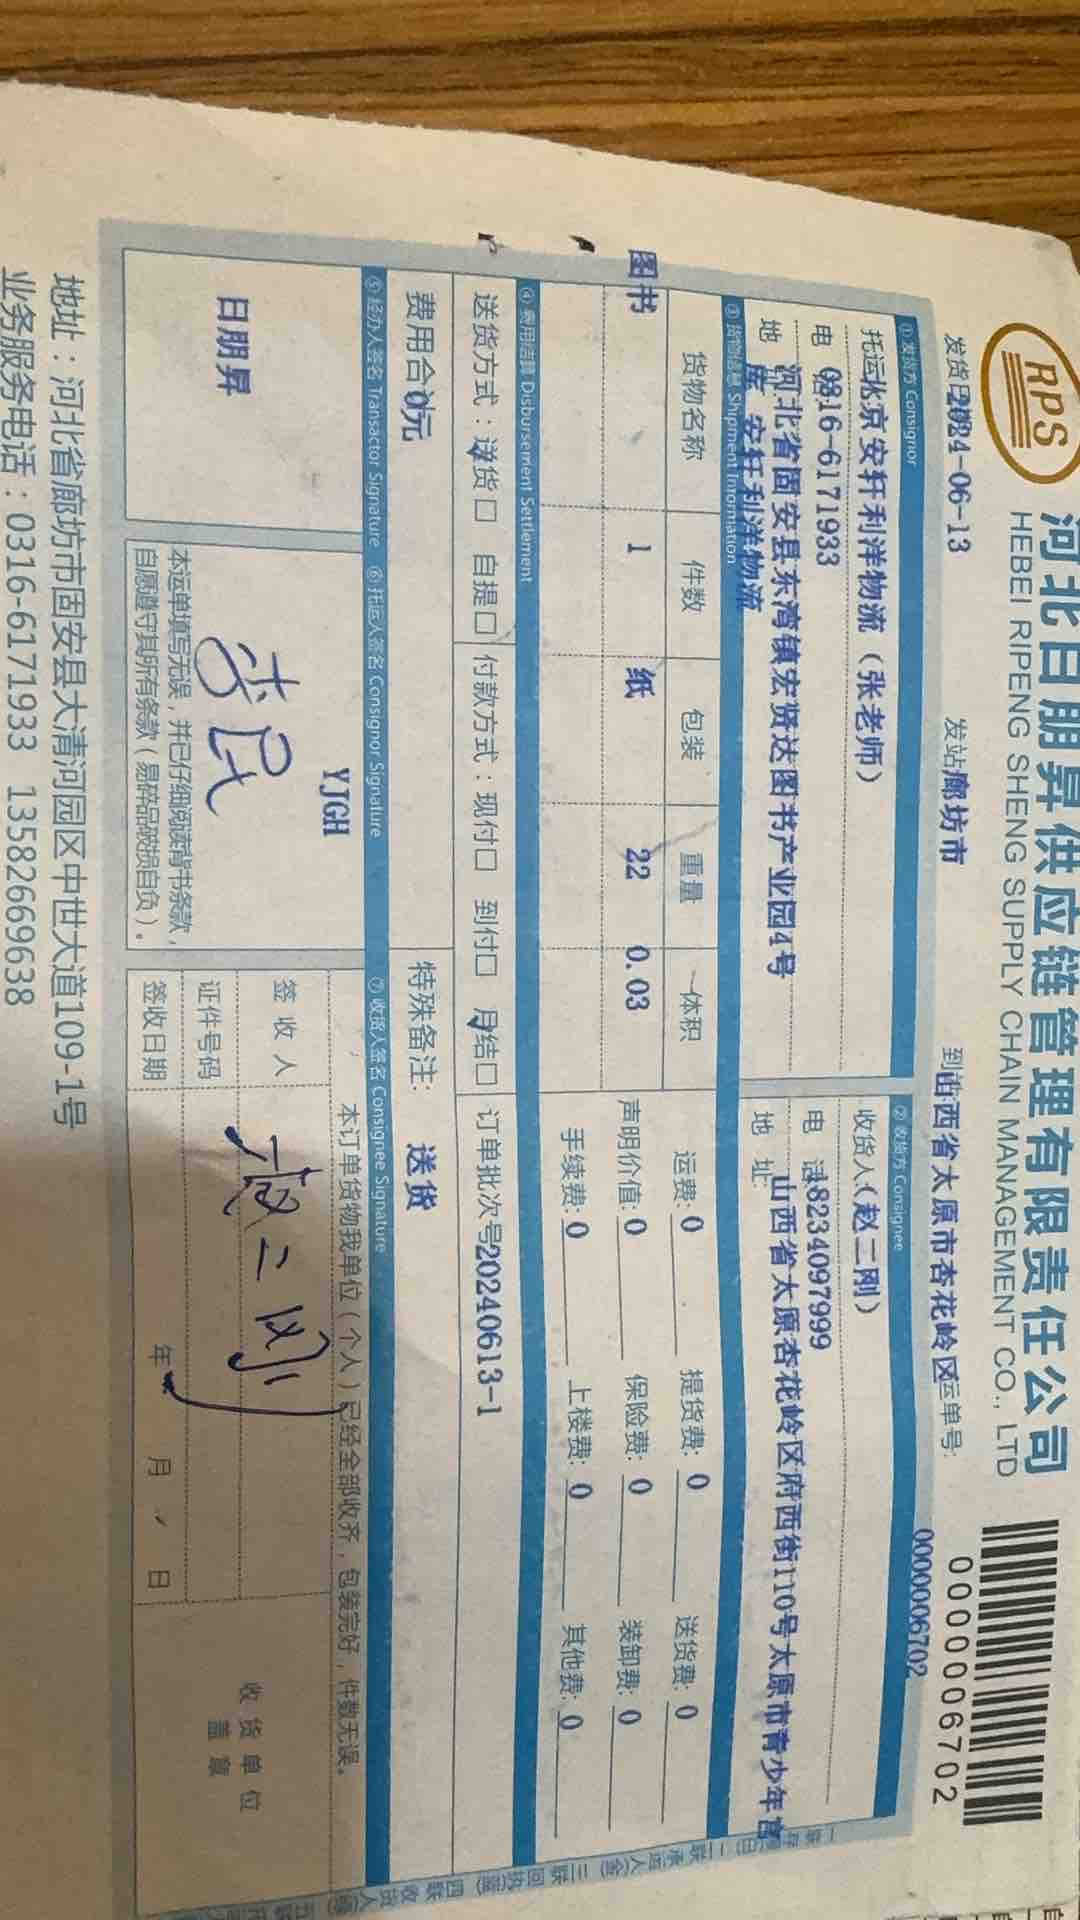 RPS
河北日朋昇供应链管理有限责任公司
HEBEI RIPENG SHENG SUPPLY CHAIN MANAGEMENT CO., LTD
0000006702
0000006702
发货日 2024-06-13 发站 廊坊市 到站 山西省太原市杏花岭区 运单号:
①发货方 Consignor ②收货方 Consignee
托运 北京安轩利洋物流（张老师） 收货人:（赵二刚）
电 0316-6171933 电 话 18234097999
地 河北省固安县东湾镇宏贤达图书产业园4号 地 址: 山西省太原杏花岭区府西街110号太原市青少年宫
库 安轩利洋物流
③货物信息 Shipment Information
货物名称 件数 包装 重量 体积 运费: 0 提货费: 0 送货费: 0
图书 1 纸 22 0.03 声明价值: 0 保险费: 0 装卸费: 0
手续费: 0 上楼费: 0 其他费: 0
④费用结算 Disbursement Settlement
送货方式：送货□ 自提□ 付款方式：现付□ 到付□ 月结□ 订单批次号 20240613-1
费用合 0元 特殊备注: 送货
⑤经办人签名 Transactor Signature ⑥托运人签名 Consignor Signature ⑦收货人签名 Consignee Signature
日朋昇
YJGH
本运单填写无误，并已仔细阅读背书条款，
自愿遵守其所有条款（易碎品破损自负）。
本订单货物我单位（个人）已经全部收齐，包装完好，件数无误。
签收人
证件号码
签收日期 年 月 日
收货单位
盖章
地址：河北省廊坊市固安县大清河园区中世大道109-1号
业务服务电话：0316-6171933 13582669638